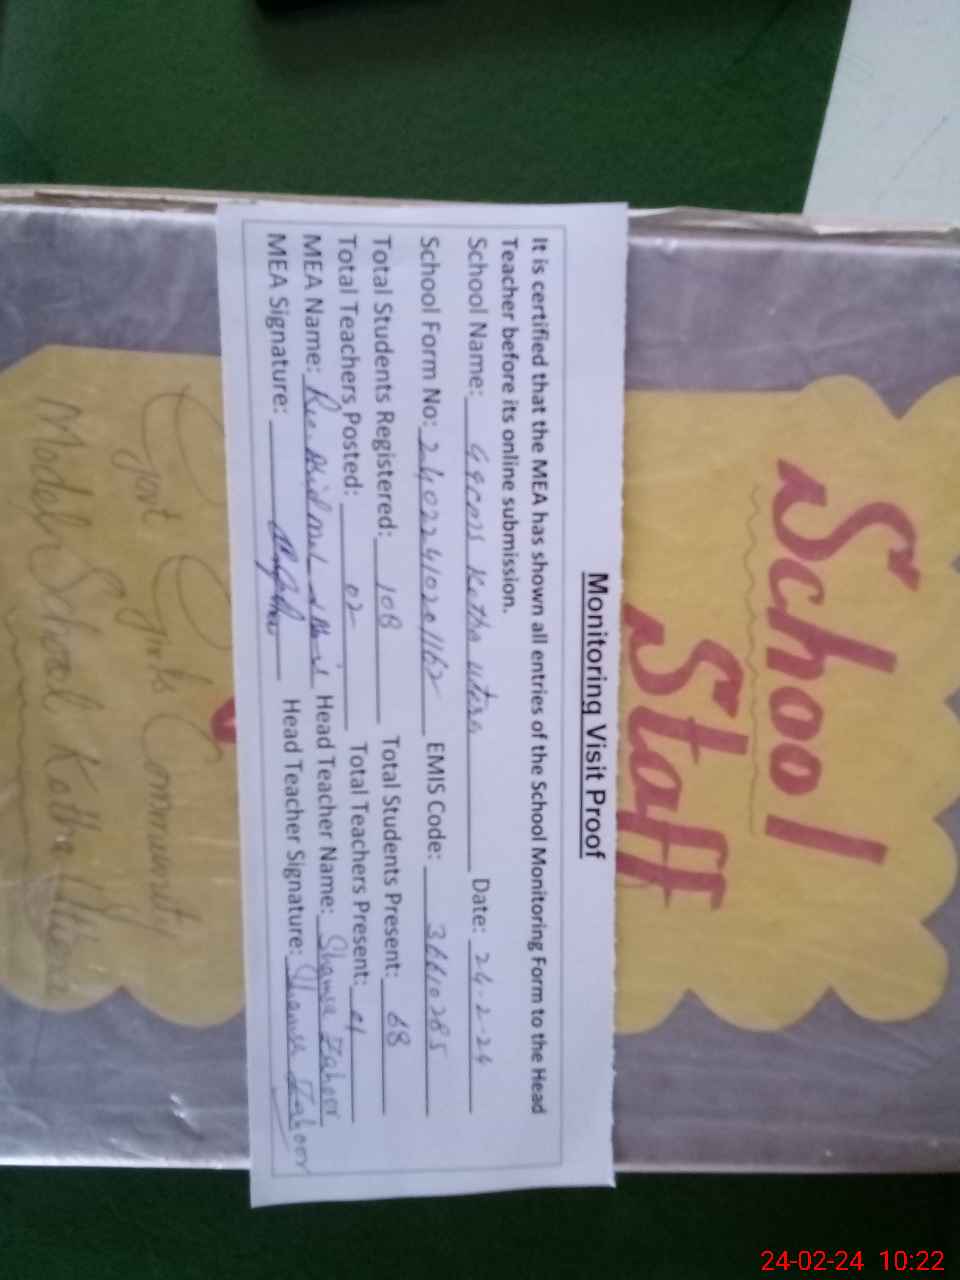 School
Staff
Monitoring Visit Proof
It is certified that the MEA has shown all entries of the School Monitoring Form to the Head
Teacher before its online submission.
School Name: GGCMS Date: 24-2-24
School Form No: EMIS Code:
Total Students Registered: 108 Total Students Present: 68
Total Teachers Posted: 02 Total Teachers Present: 01
MEA Name: Head Teacher Name:
MEA Signature: Head Teacher Signature:
Govt Girls Community
Model School
24-02-24 10:22